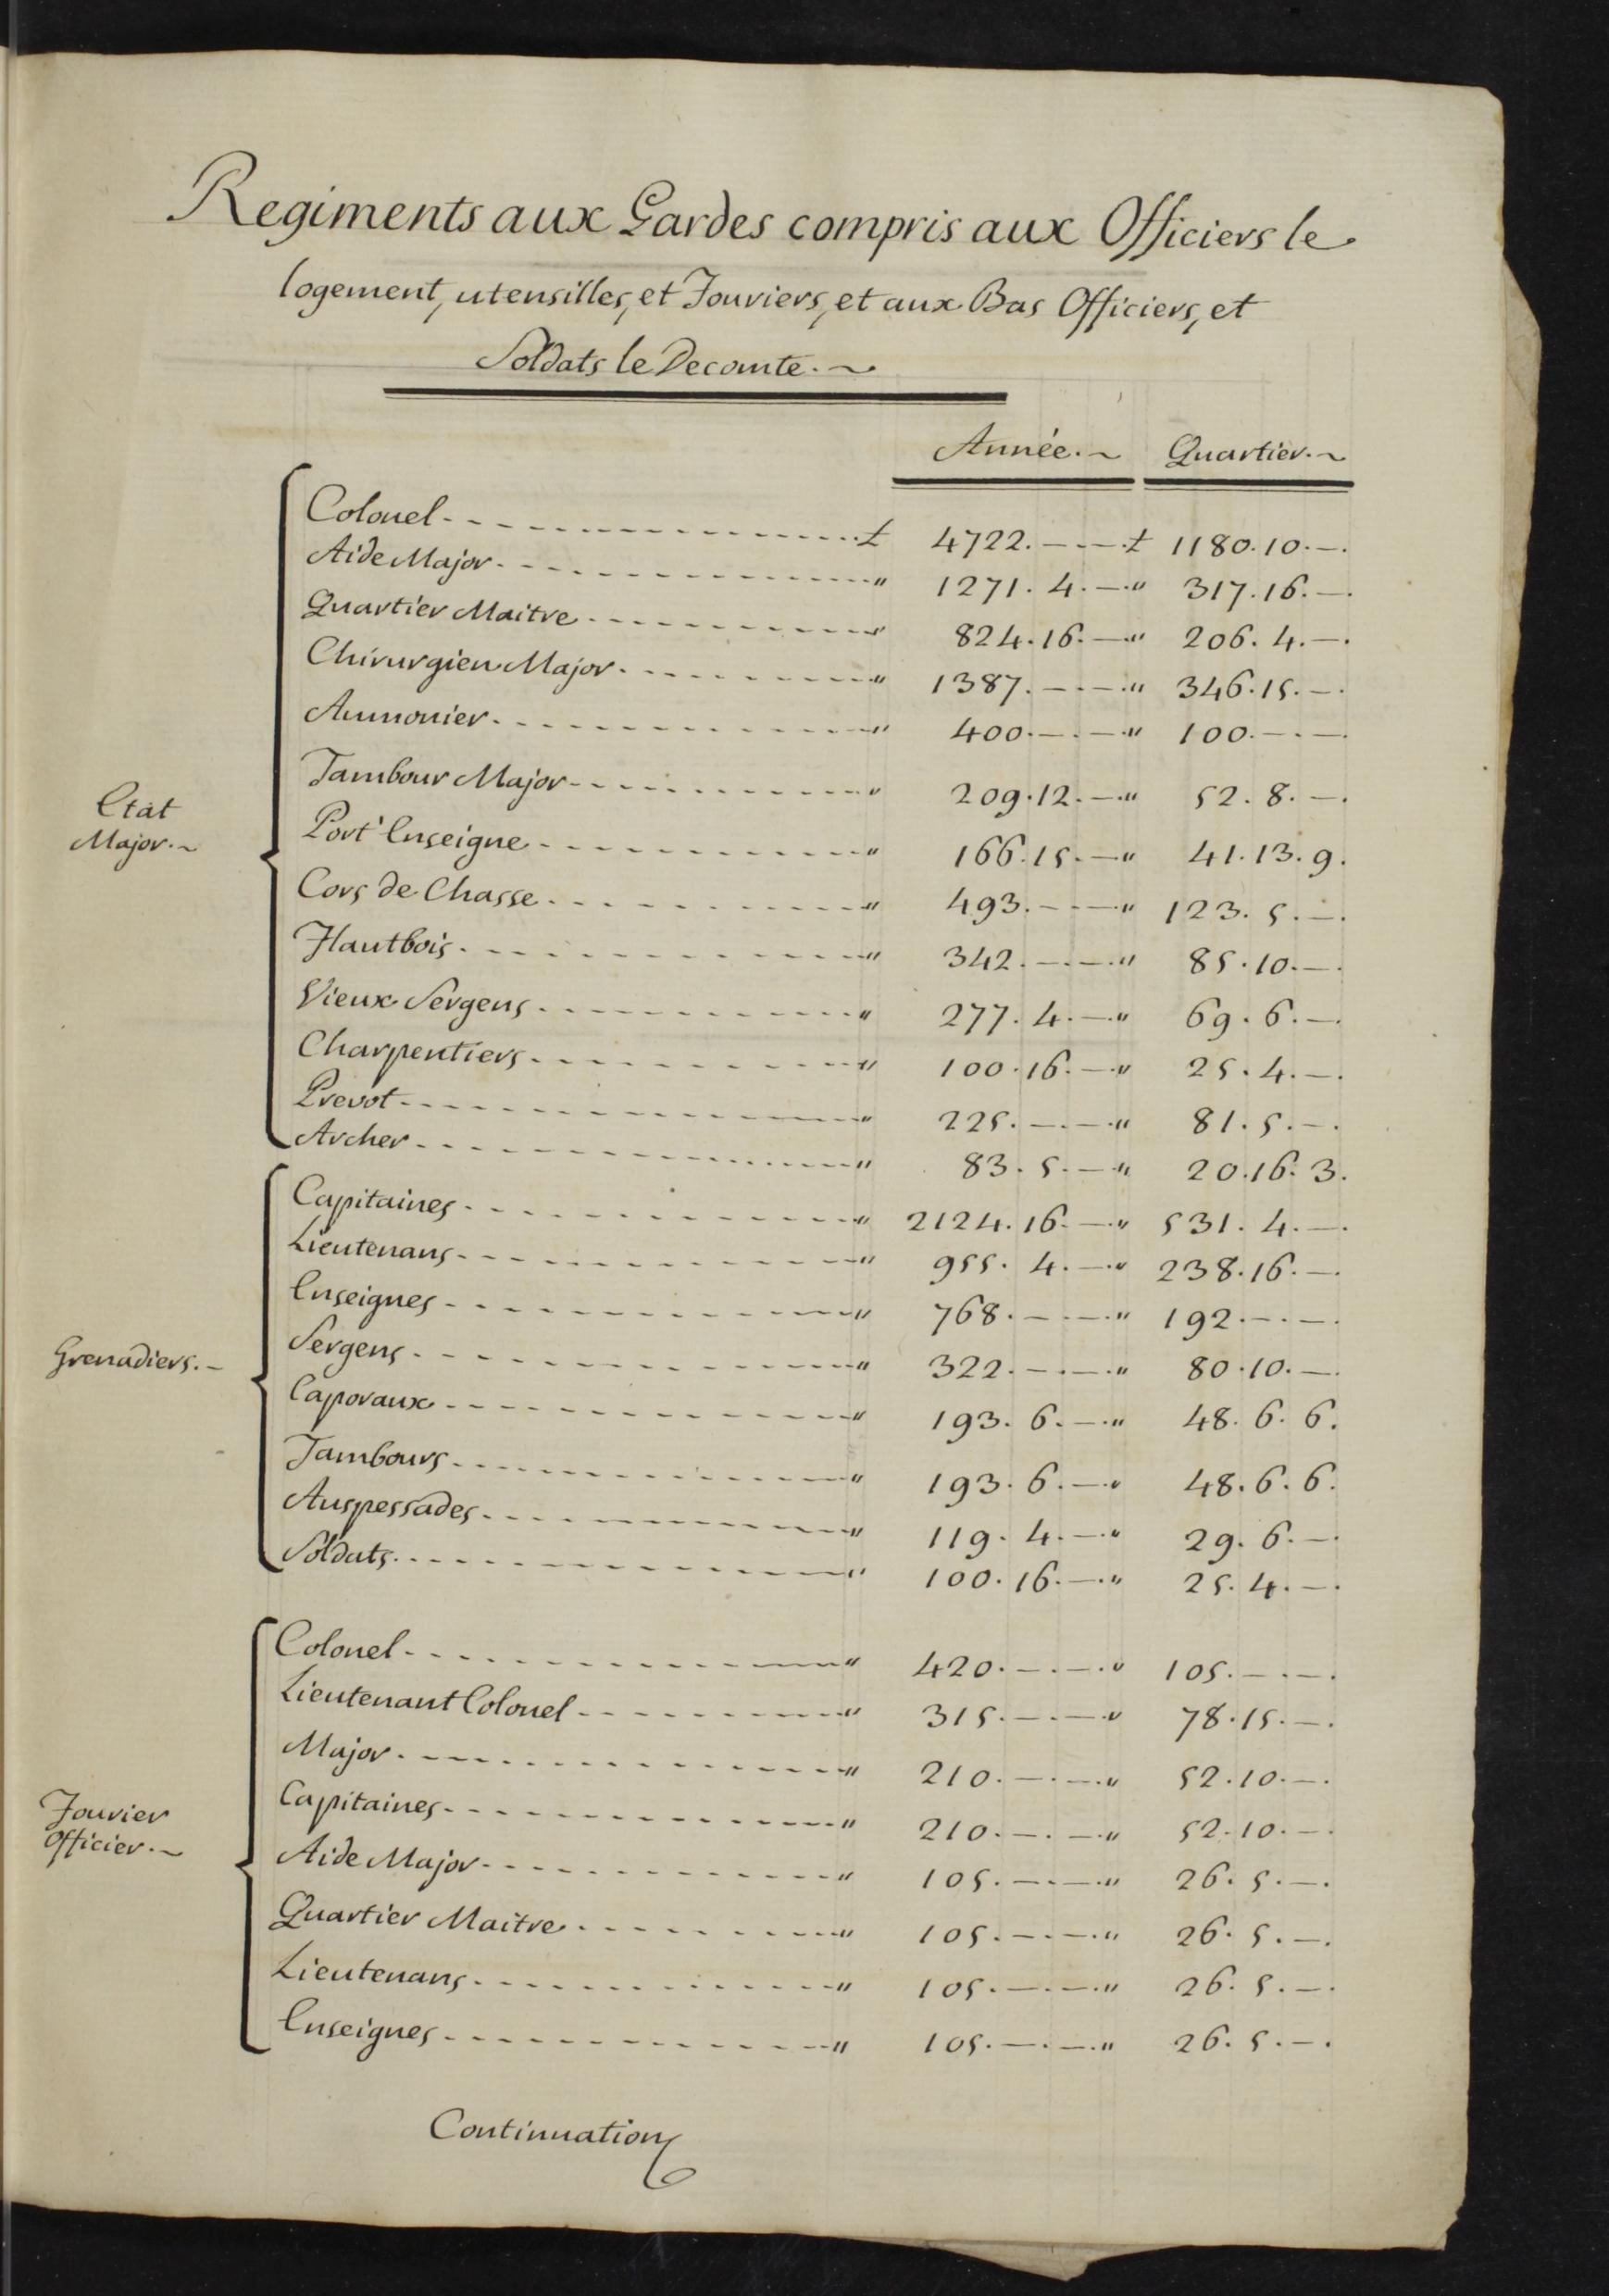 Regiments aux Gardes compris aux Officiers le
logement, utensilles, et Fouriers, et aux Bas Officiers, et
Soldats le Decomte.
Année. Quartier.
Etat
Major.
Colonel £ 4722. — . — . £ 1180. 10. — .
Aide Major " 1271. 4. — " 317. 16. — .
Quartier Maitre " 824. 16. — " 206. 4. — .
Chirurgien Major " 1387. — . — " 346. 15. — .
Aumonier " 400. — . — " 100. — . — .
Tambour Major " 209. 12. — " 52. 8. — .
Port' Enseigne " 166. 15. — " 41. 13. 9.
Cors de Chasse " 493. — . — " 123. 5. — .
Hautbois " 342. — . — " 85. 10. — .
Vieux Sergens " 277. 4. — " 69. 6. — .
Charpentiers " 100. 16. — " 25. 4. — .
Prevot " 225. — . — " 81. 5. — .
Archer " 83. 5. — " 20. 16. 3.
Grenadiers.
Capitaines " 2124. 16. — " 531. 4. — .
Lieutenans " 955. 4. — " 238. 16. — .
Enseignes " 768. — . — " 192. — . — .
Sergens " 322. — . — " 80. 10. — .
Caporaux " 193. 6. — " 48. 6. 6.
Tambours " 193. 6. — " 48. 6. 6.
Anspessades " 119. 4. — " 29. 6. — .
Soldats " 100. 16. — " 25. 4. — .
Fourier
Officier.
Colonel " 420. — . — " 105. — . — .
Lieutenant Colonel " 315. — . — " 78. 15. — .
Major " 210. — . — " 52. 10. — .
Capitaines " 210. — . — " 52. 10. — .
Aide Major " 105. — . — " 26. 5. — .
Quartier Maitre " 105. — . — " 26. 5. — .
Lieutenans " 105. — . — " 26. 5. — .
Enseignes " 105. — . — " 26. 5. — .
Continuation